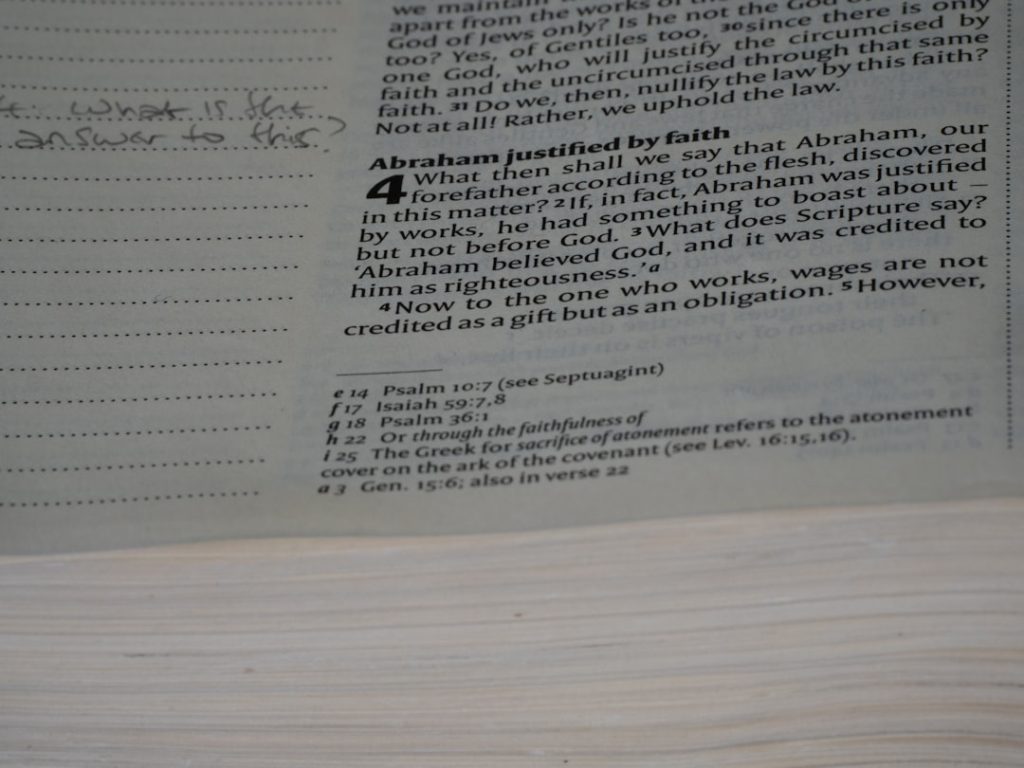 we maintain
apart from the works of
God of Jews only? Is he not the God of
too? Yes, of Gentiles too, 30 since there is only
one God, who will justify the circumcised by
faith and the uncircumcised through that same
faith. 31 Do we, then, nullify the law by this faith?
Not at all! Rather, we uphold the law.
What is the
answer to this?
Abraham justified by faith
4 What then shall we say that Abraham, our
forefather according to the flesh, discovered
in this matter? 2 If, in fact, Abraham was justified
by works, he had something to boast about –
but not before God. 3 What does Scripture say?
‘Abraham believed God, and it was credited to
him as righteousness.’ a
4 Now to the one who works, wages are not
credited as a gift but as an obligation. 5 However,
e 14 Psalm 10:7 (see Septuagint)
f 17 Isaiah 59:7,8
g 18 Psalm 36:1
h 22 Or through the faithfulness of
i 25 The Greek for sacrifice of atonement refers to the atonement
cover on the ark of the covenant (see Lev. 16:15,16).
a 3 Gen. 15:6; also in verse 22